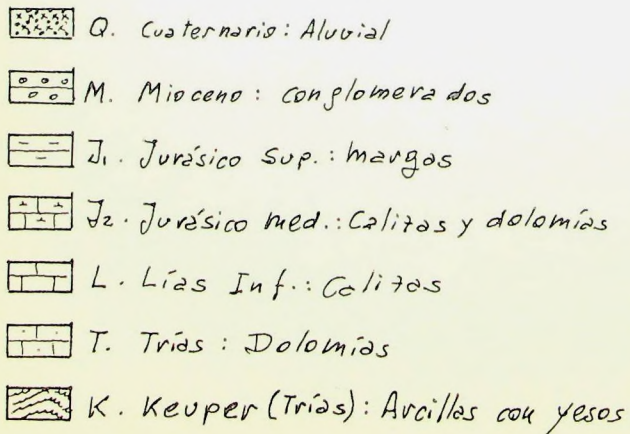 Q. Cuaternario: Aluvial
M. Mioceno: conglomerados
J₁. Jurásico Sup.: margas
J₂. Jurásico med.: Calizas y dolomías
L. Lías Inf.: Calizas
T. Trías: Dolomías
K. Keuper (Trías): Arcillas con yesos